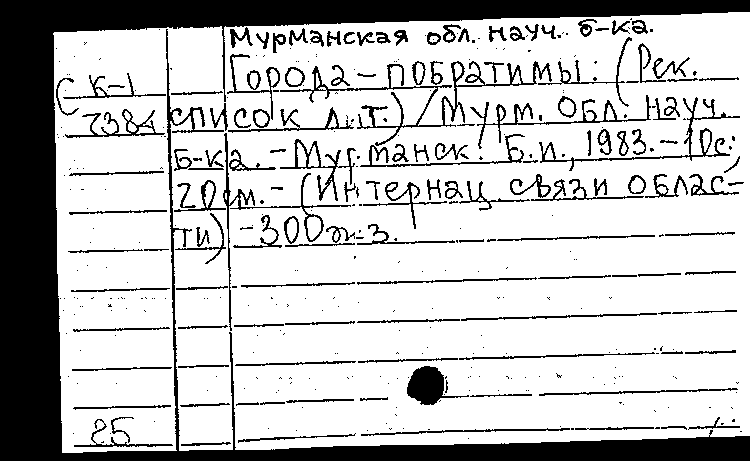 Мурманская обл. науч. б-ка.
Города-побратимы: (Рек.
С К-1
список лит.) / Мурм. обл. науч.
б-ка. - Мурманск: Б.и., 1983. - 10с.;
20см. - (Интернац. связи облас-
ти) - 300экз.
85